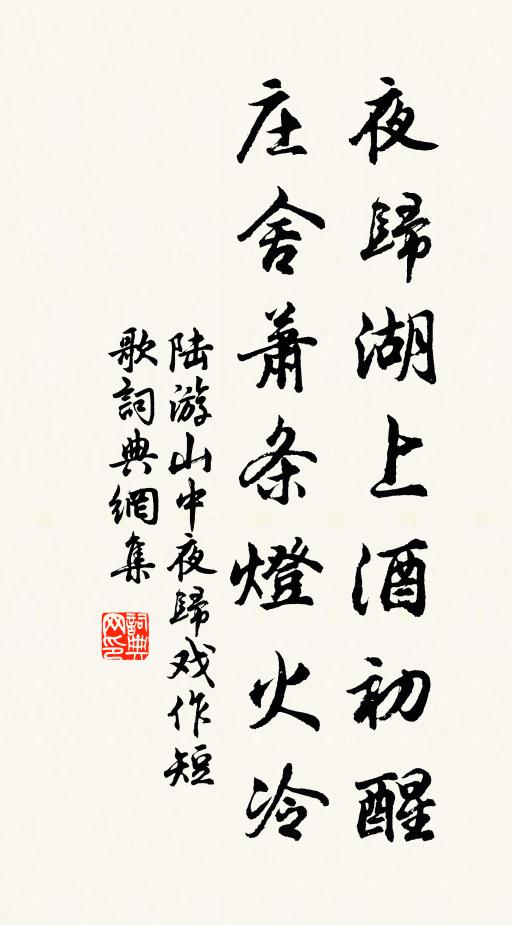 夜歸湖上酒初醒
庄舍蕭条燈火冷
陆游山中夜歸戏作短
歌詞典網集
詞典
网印